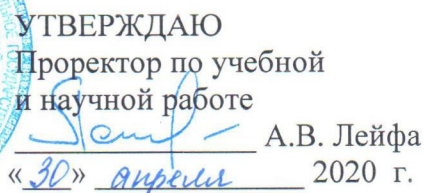 УТВЕРЖДАЮ
Проректор по учебной
и научной работе
А.В. Лейфа
«30» апреля 2020 г.